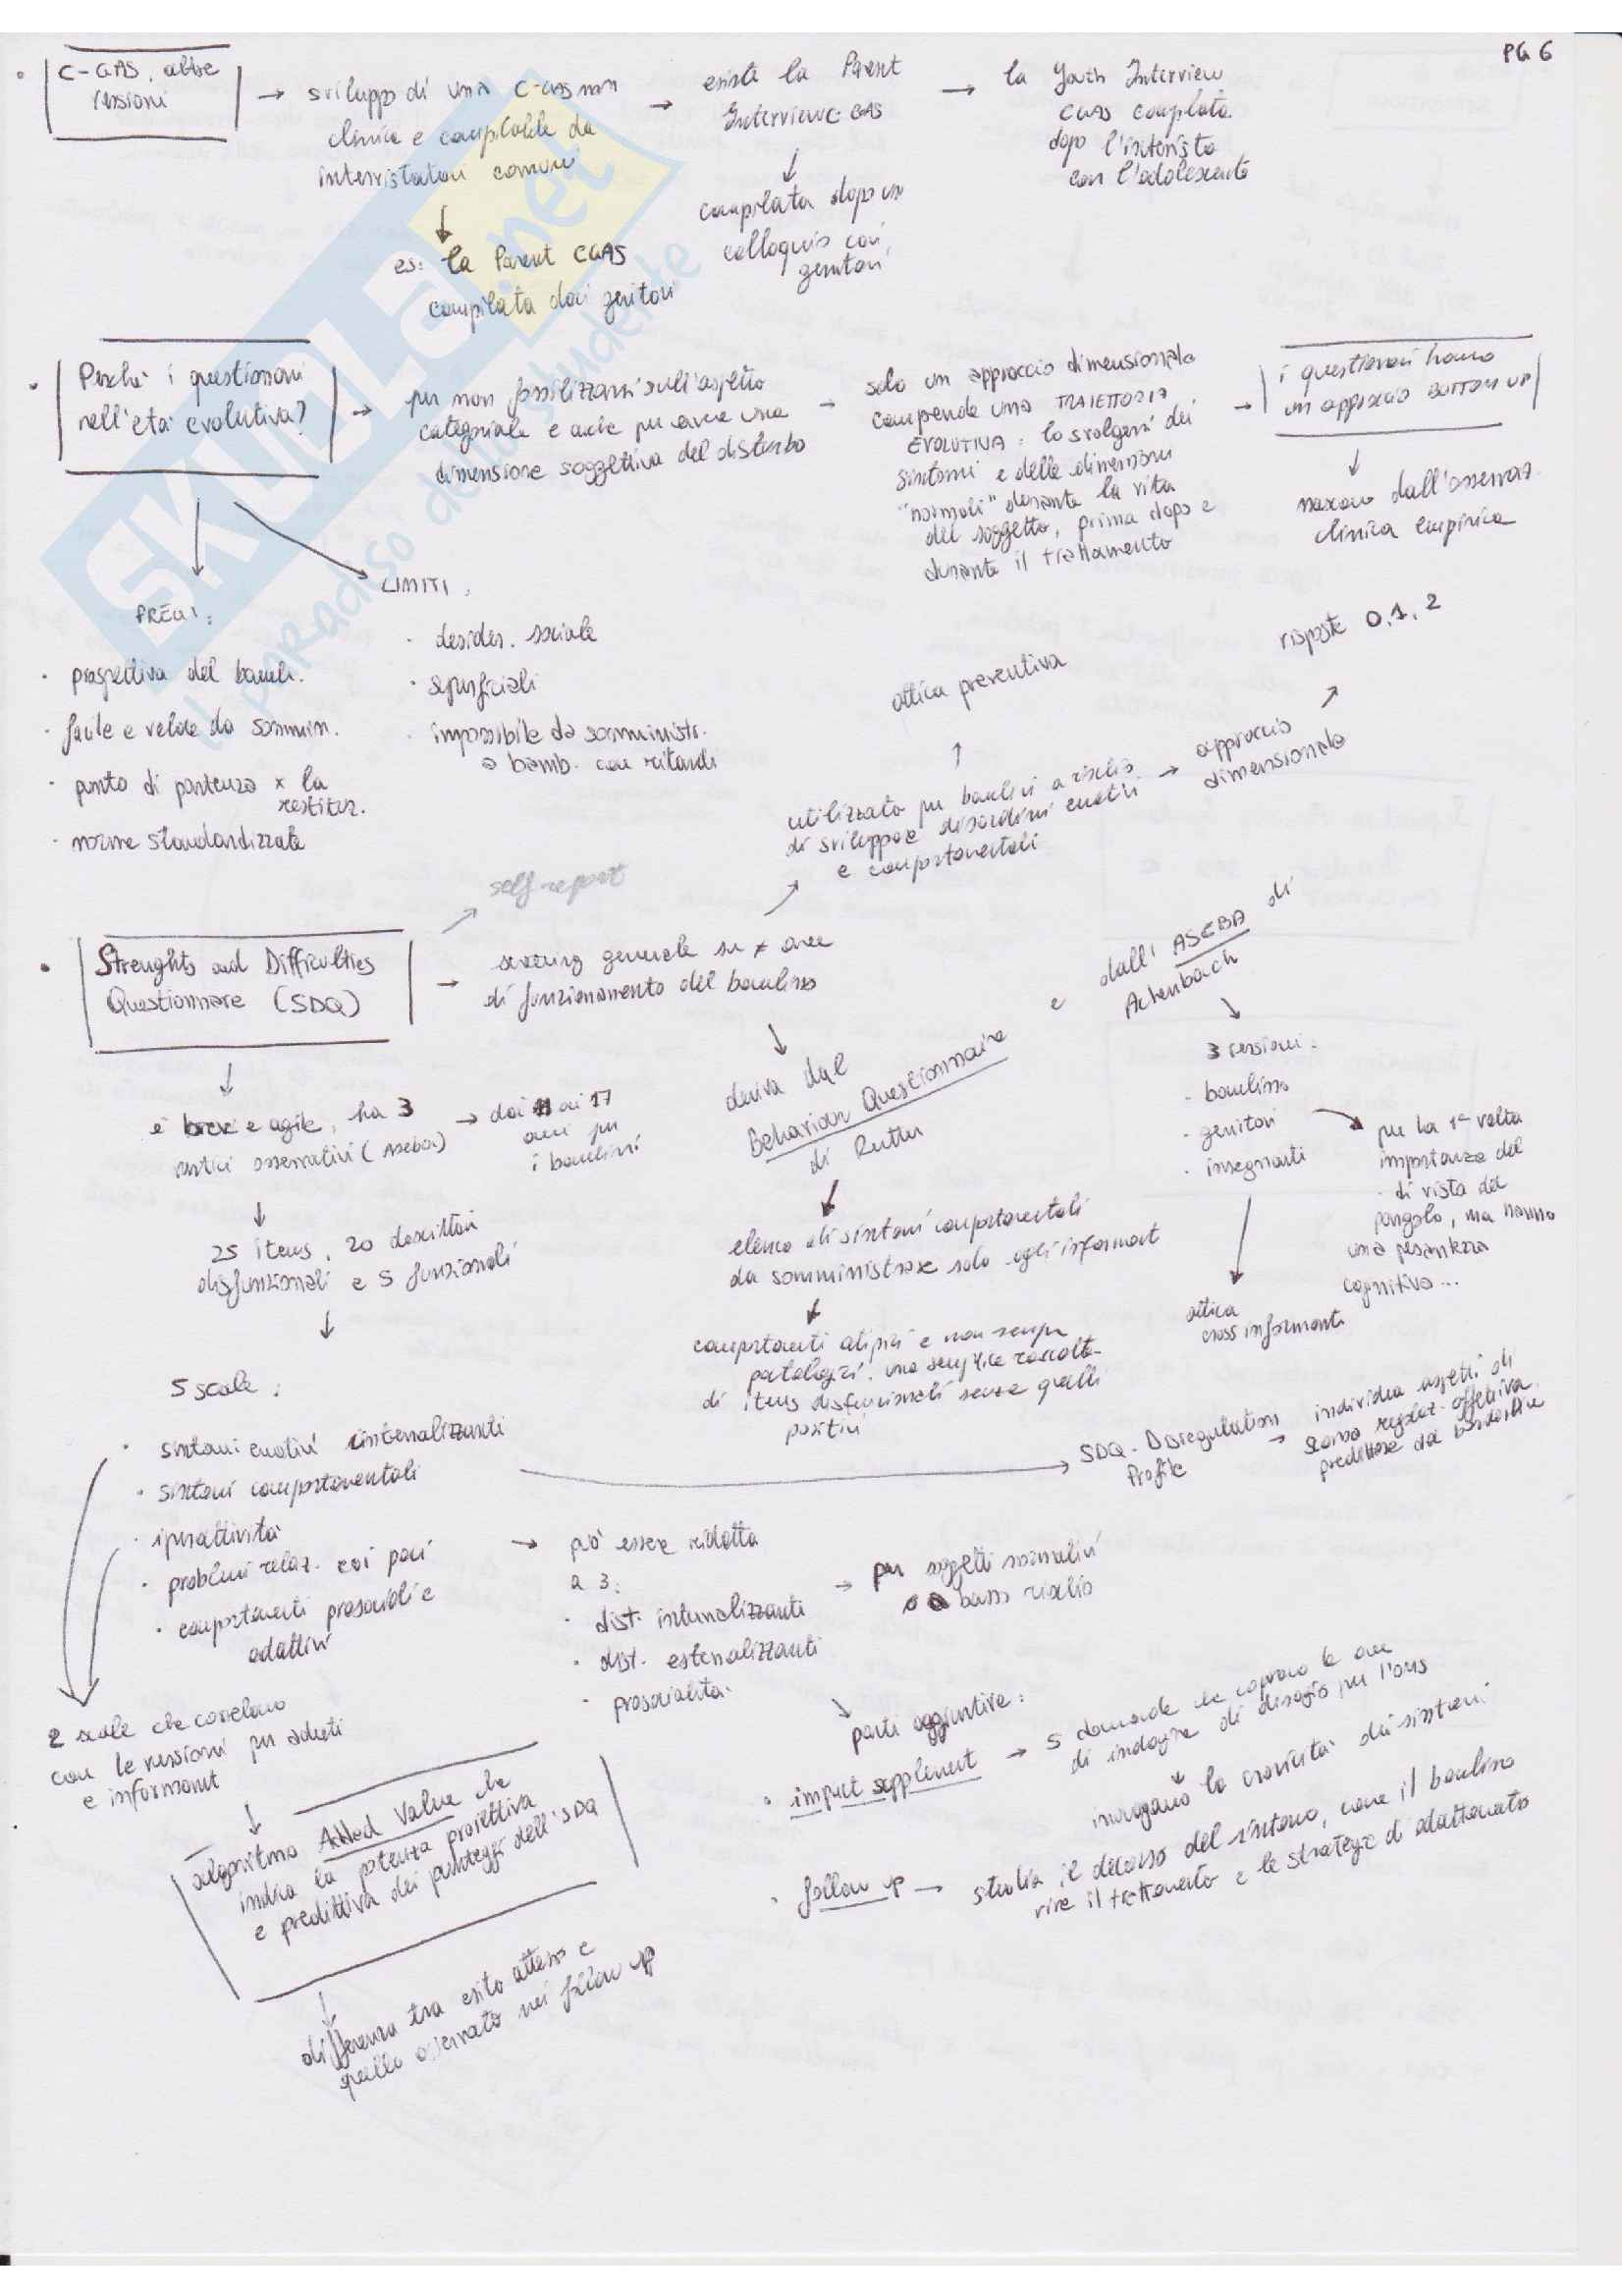 PG 6
C-GAS, altre
versioni
→ sviluppo di una C-GAS non
clinica e compilabile da
intervistatori comuni
es: la Parent CGAS
compilata dai genitori
→ esiste la Parent
Interview C-GAS
compilata dopo un
colloquio coi
genitori
→ la Youth Interview
CGAS compilata
dopo l'intervista
con l'adolescente
Perché i questionari
nell'età evolutiva?
→ per non fossilizzarsi sull'aspetto
categoriale e anche per avere una
dimensione soggettiva del disturbo
→ solo un approccio dimensionale
comprende una TRAIETTORIA
EVOLUTIVA: lo svolgersi dei
sintomi e delle dimensioni
"normali" durante la vita
del soggetto, prima dopo e
durante il trattamento
→ i questionari hanno
un approccio BOTTOM UP
nascono dall'osservaz.
clinica empirica
PREGI:
· prospettiva del bamb.
· facile e veloce da sommin.
· punto di partenza x la
restituz.
· norme standardizzate
LIMITI:
· desider. sociale
· superficiali
· impossibile da somministr.
a bamb. con ritardi
Strenghts and Difficulties
Questionnare (SDQ)
self-report
→ screening generale su ≠ aree
di funzionamento del bambino
utilizzato per bambini a rischio
di sviluppare disordini emotivi
e comportamentali
ottica preventiva
→ approccio
dimensionale
risposte 0, 1, 2
deriva dal
Behaviour Questionnaire
di Rutter
e dall'ASEBA di
Achenbach
3 versioni:
· bambino
· genitori
· insegnanti
per la 1ª volta
importanza del
· di vista del
pargolo, ma hanno
una pesantezza
cognitiva...
ottica
cross informant
elenco di sintomi comportamentali
da somministrare solo agli informant
comportamenti atipici e non sempre
patologici. una semplice raccolta
di items disfunzionali senza quelli
positivi
è breve e agile, ha 3
vertici osservativi (aseba)
→ dai 11 ai 17
anni per
i bambini
25 items, 20 descrittori
disfunzionali e 5 funzionali
5 scale:
· sintomi emotivi internalizzanti
· sintomi comportamentali
· iperattività
· problemi relaz. coi pari
· comportamenti prosociali e
adattivi
SDQ-Disregulation
Profile
→ individua aspetti di
scarsa regolaz. affettiva,
predittore del borderline
→ può essere ridotta
a 3:
· dist. internalizzanti
· dist. esternalizzanti
· prosocialità
→ per soggetti normativi
o a basso rischio
2 scale che correlano
con le versioni per adulti
e informant
algoritmo Added Value che
indica la potenza proiettiva
e predittiva dei punteggi dell'SDQ
differenza tra esito atteso e
quello osservato nei follow up
parti aggiuntive:
· impact supplement → 5 domande che coprono le aree
di indagine di disagio per l'oms
indagano la cronicità dei sintomi
· follow up → studia il decorso del sintomo, come il bambino
vive il trattamento e le strategie di adattamento
SKUOLA.net
il paradiso dello studente